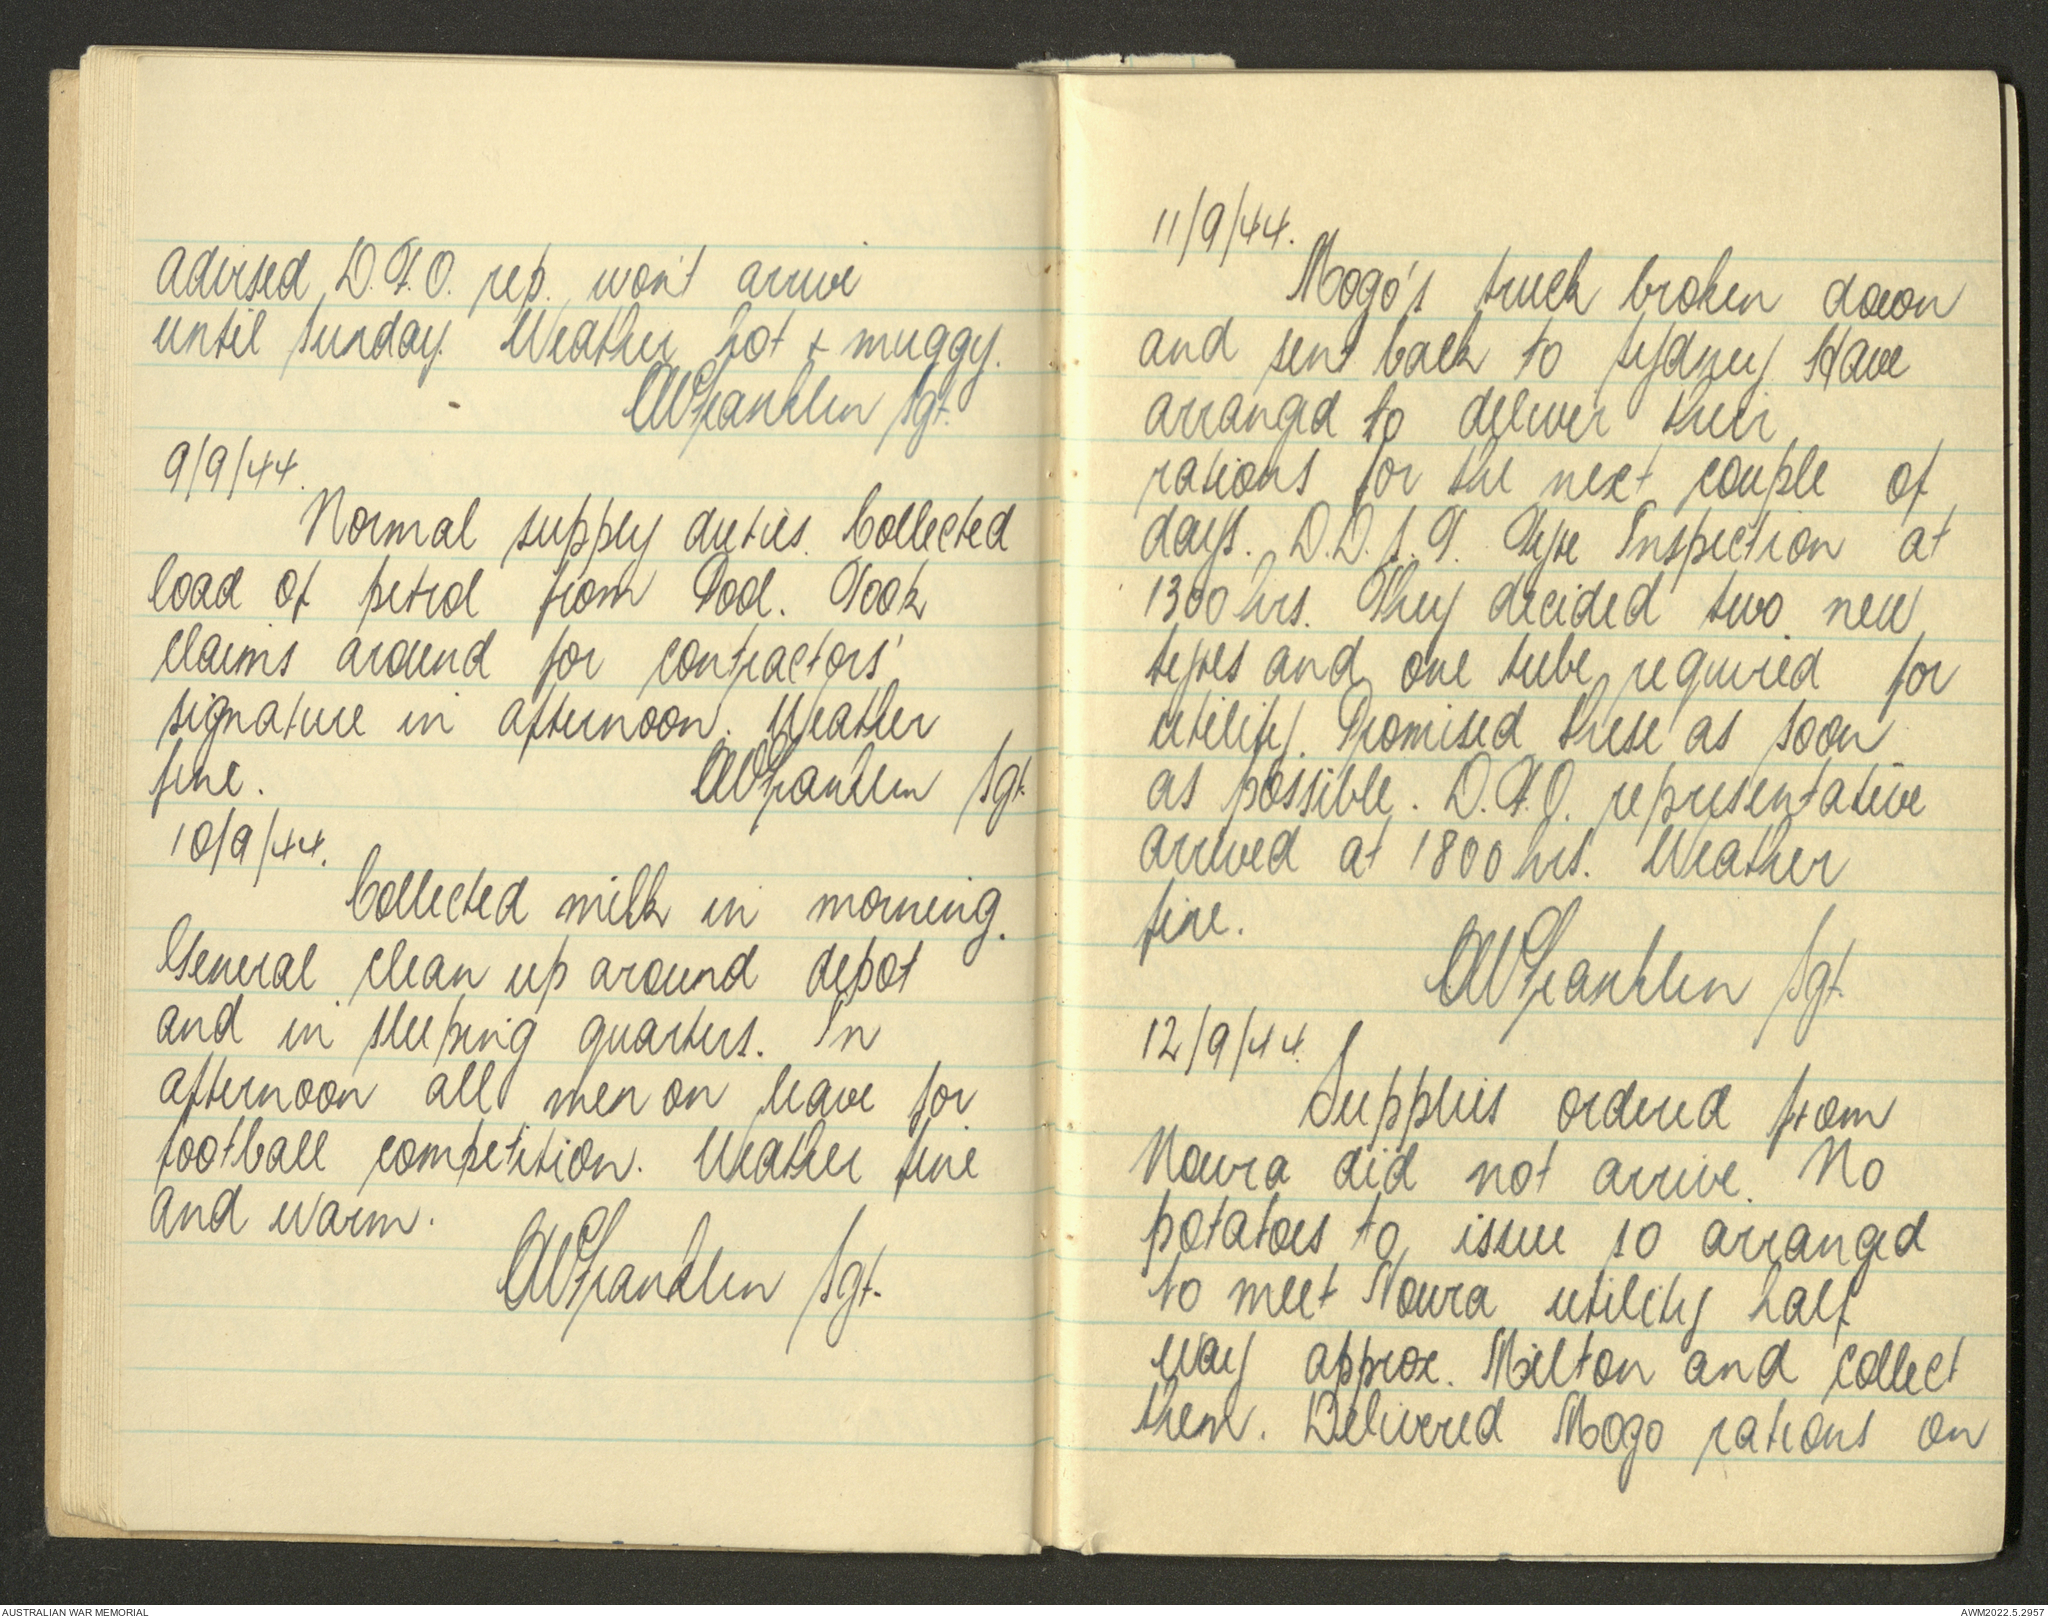 advised D.F.O. rep. won't arrive
until Sunday. Weather hot + muggy.
AW Franklin Sgt.
9/9/44.
Normal supply duties. Collected
load of petrol from Pool. Took
claims around for contractors'
signature in afternoon. Weather
fine. AW Franklin Sgt.
10/9/44.
Collected milk in morning.
General clean up around depot
and in sleeping quarters. In
afternoon all men on leave for
football competition. Weather fine
and warm.
AW Franklin Sgt.
11/9/44.
Mogo's truck broken down
and sent back to Sydney. Have
arranged to deliver their
rations for the next couple of
days. D.D.S.T. Tyre Inspection at
1300 hrs. They decided two new
tyres and one tube required for
utility. Promised these as soon
as possible. D.F.O. representative
arrived at 1800 hrs. Weather
fine.
AW Franklin Sgt.
12/9/44.
Supplies ordered from
Nowra did not arrive. No
potatoes to issue so arranged
to meet Nowra utility half
way approx. Milton and collect
them. Delivered Mogo rations on
AUSTRALIAN WAR MEMORIAL
AWM2022.5.2957